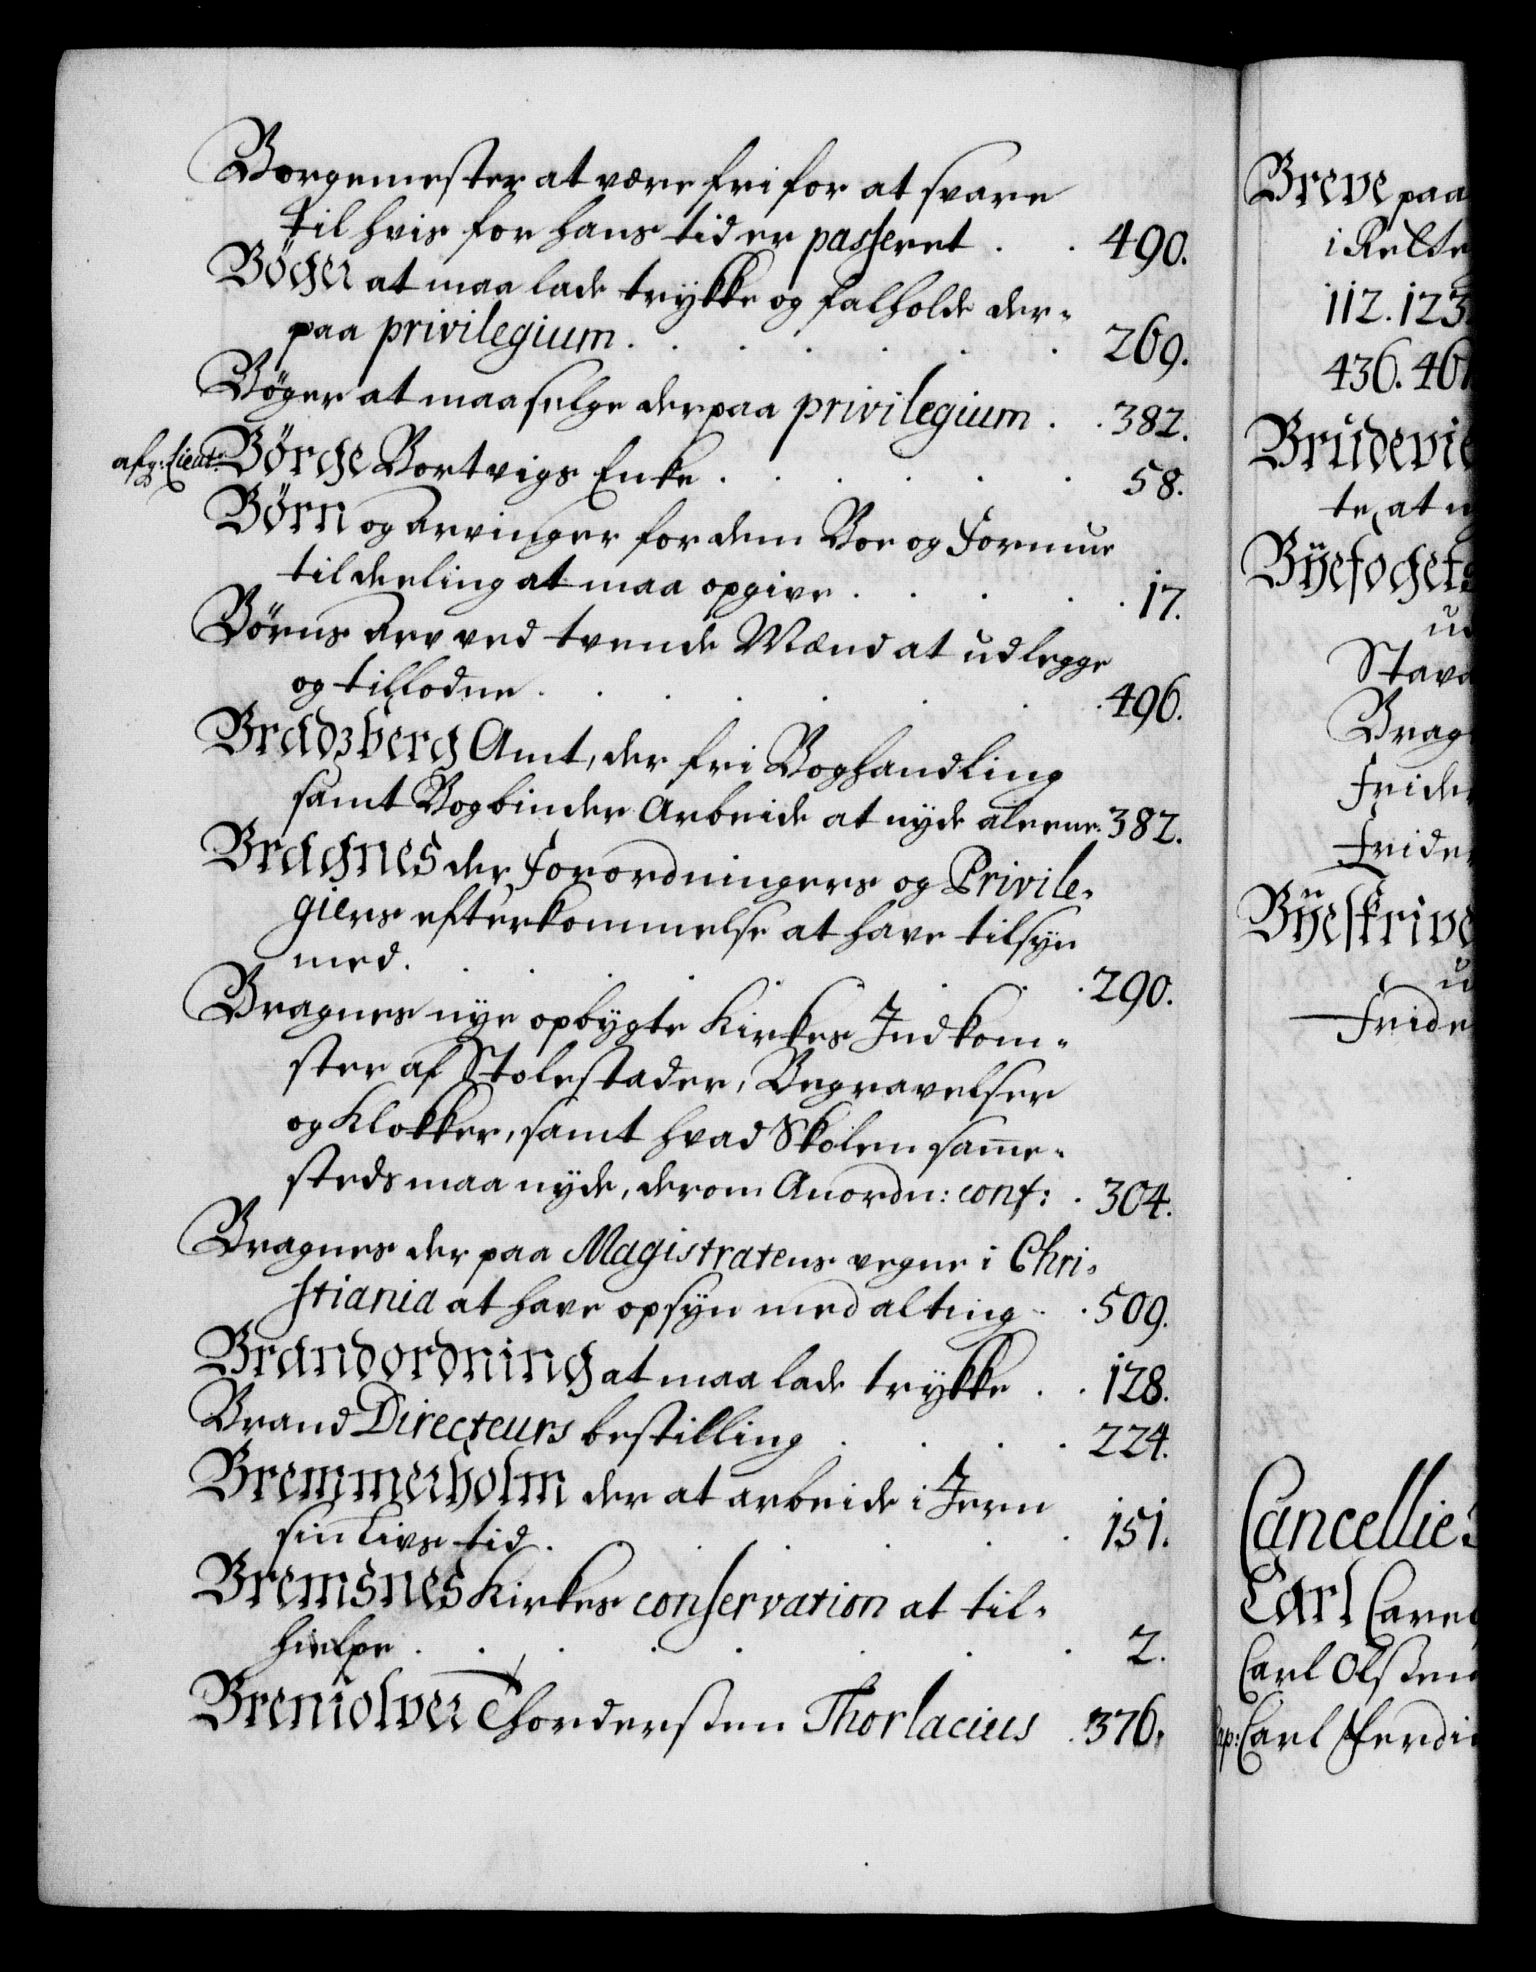 Borgemester at være fri for at svare
til hvis for hans tid er passeret . . 490.
Bøger at maa lade trykke og falholde der-
paa privilegium . . . . . . . 269.
Bøger at maa selge derpaa privilegium . . 382.
afg: Lieut: Børge Bortvigs Enke . . . . . . 58.
Børn og Arvinger for dem Boe og Formue
til deeling at maa opgive . . . . . 17.
Børns Arv ved tvende Mænd at udlegge
og tillodne . . . . . . . 496.
Bradzberg Amt, der fri Boghandling
samt Bogbinder Arbeide at nyde aleene. 382.
Bragnes der Forordningers og Privile-
giers efterkommelse at have tilsyn
med . . . . . . . . 290.
Bragnes nye opbygte Kirkes Indkom-
ster af Stolestader, Begravelser
og Klokker, samt hvad Skolen samme-
steds maa nyde, derom Anordn: conf: . 304.
Bragnes der paa Magistratens vegne i Chri-
stiania at have opsyn med alting . . 509.
Brandordning at maa lade trykke . . 128.
Brand Directeurs bestilling . . . . 224.
Bremmerholm der at arbeide i Jern
sin Livs tid . . . . . . 151.
Bremsnes Kirkes conservation at til-
hielpe . . . . . . . 2.
Breniolver Thordersen Thorlacius . 376.
Breve paa
i Rette
112. 123.
436. 461
Brudevie
te, at
Byefogets
ud
Stava
Brag
Frider
Frider
Byeskrive
u
Fride
Cancellie
Carl Care
Carl Olssen
Cap: Carl Ferdi